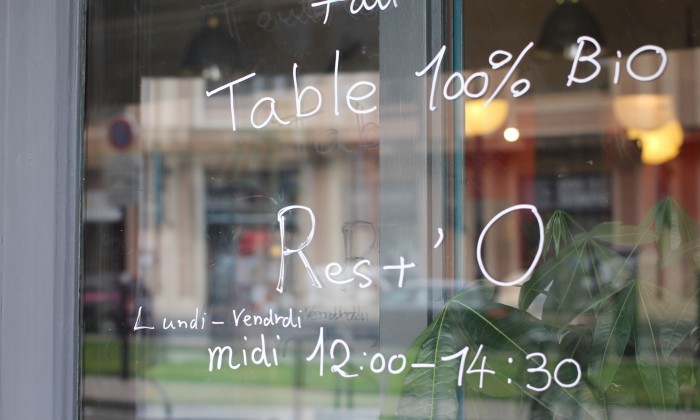 Table 100% BiO
Rest'O
Lundi - Vendrdi
midi 12:00 - 14:30